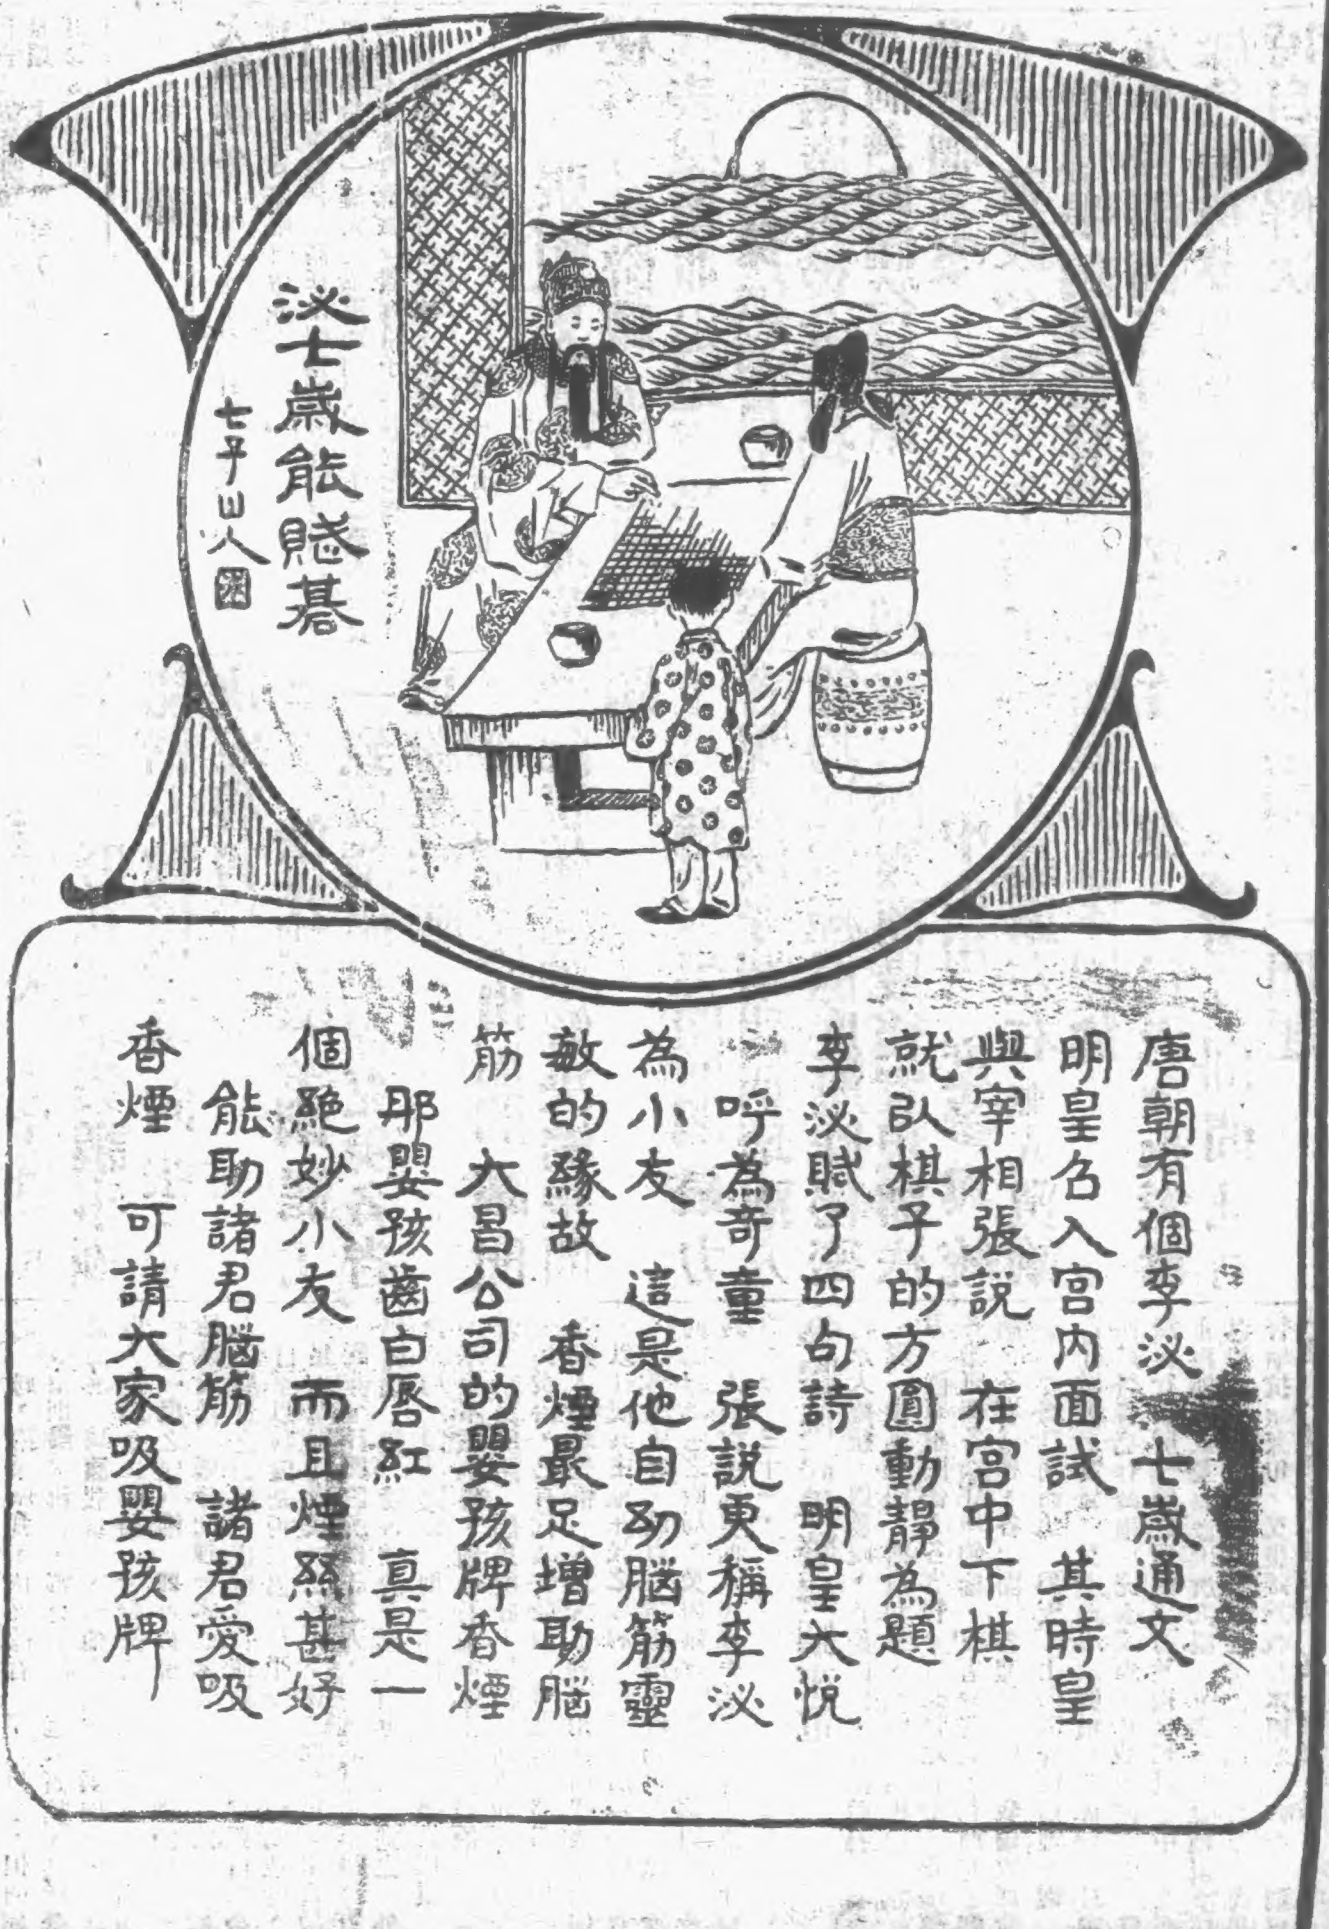 泌七歲能賦碁
七乎山人
唐朝有個李泌 七歲通文
明皇召入宮內面試 其時皇
與宰相張說 在宮中下棋
就以棋子的方圓動靜為題
李泌賦了四句詩 明皇大悅
呼為奇童 張說更稱李泌
為小友 這是他自幼腦筋靈
敏的緣故 香煙最足增助腦
筋 大昌公司的嬰孩牌香煙
那嬰孩齒白唇紅 真是一
個絕妙小友 而且煙絲甚好
能助諸君腦筋 諸君愛吸
香煙 可請大家吸嬰孩牌